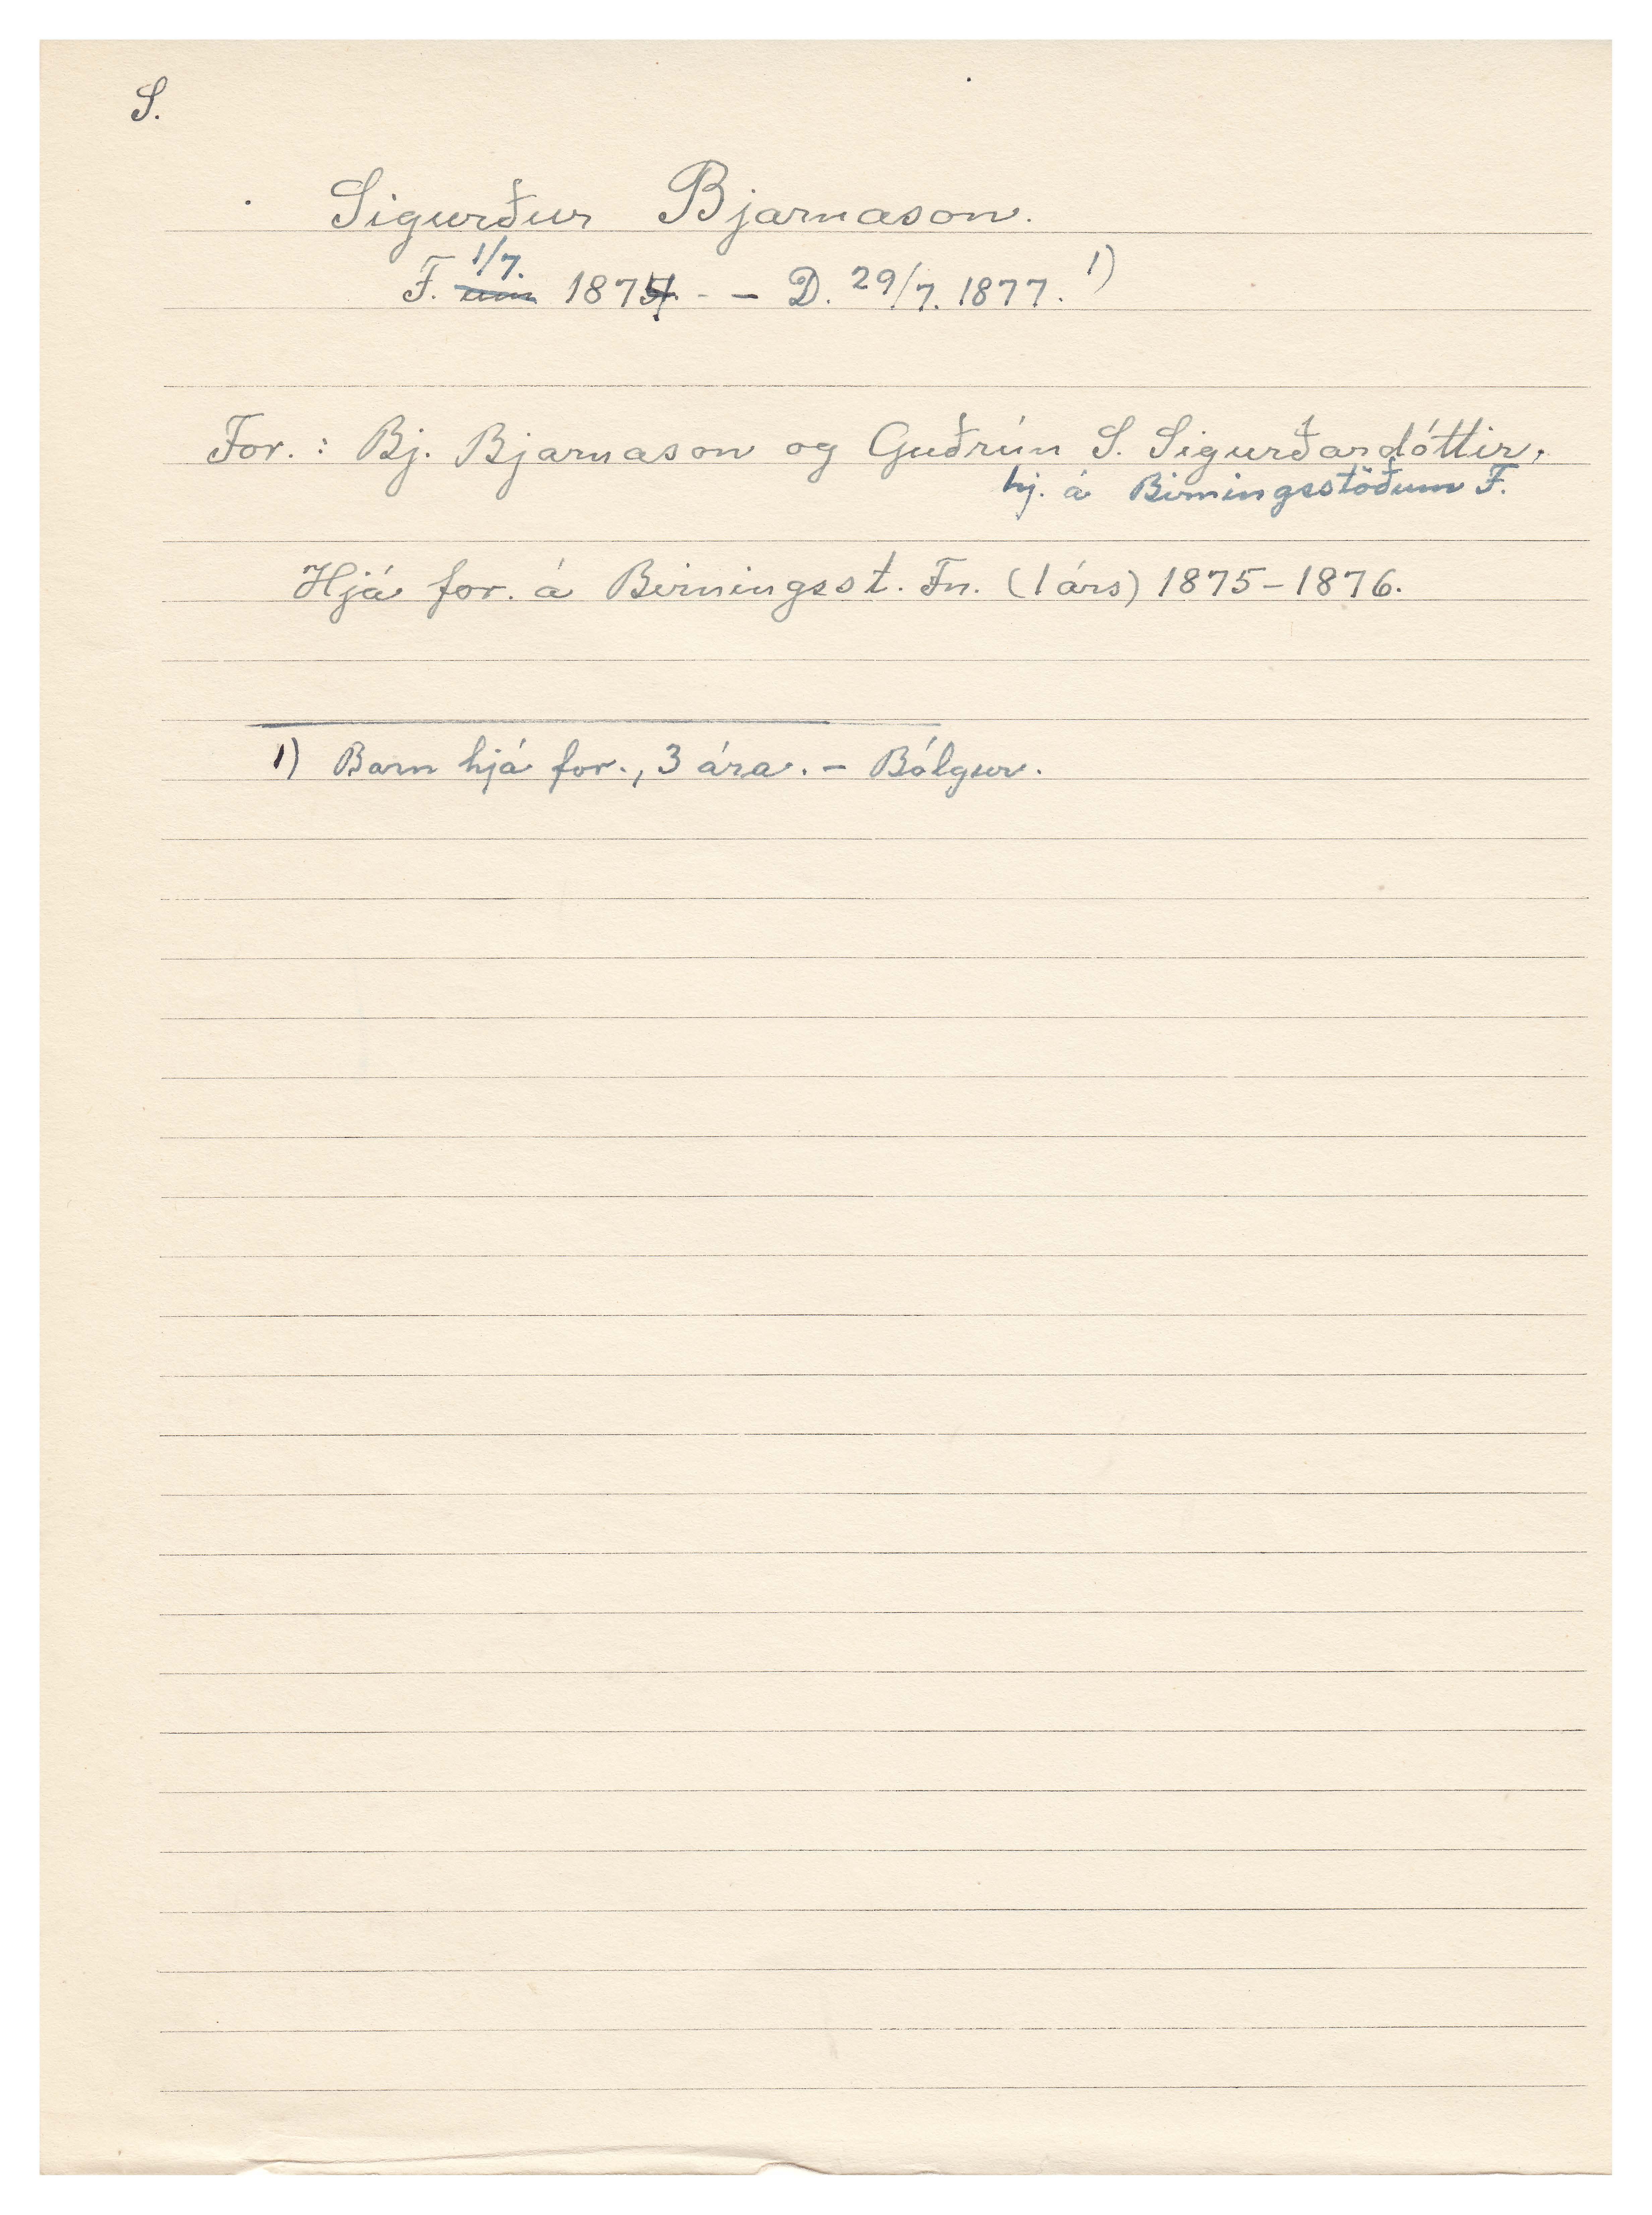 S.
Sigurður Bjarnason.
1/7.
F. um 1874. - - D. 29/7. 1877. 1)
For.: Bj. Bjarnason og Guðrún S. Sigurðardóttir,
hj. á Birningsstöðum F.
Hjá for. á Birningsst. Fn. (1 árs) 1875-1876.
1) Barn hjá for., 3 ára. - Bólgur.